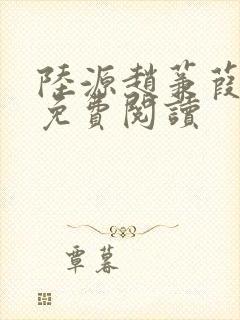 陸源趙蒹葭
免費閱讀
覃暮